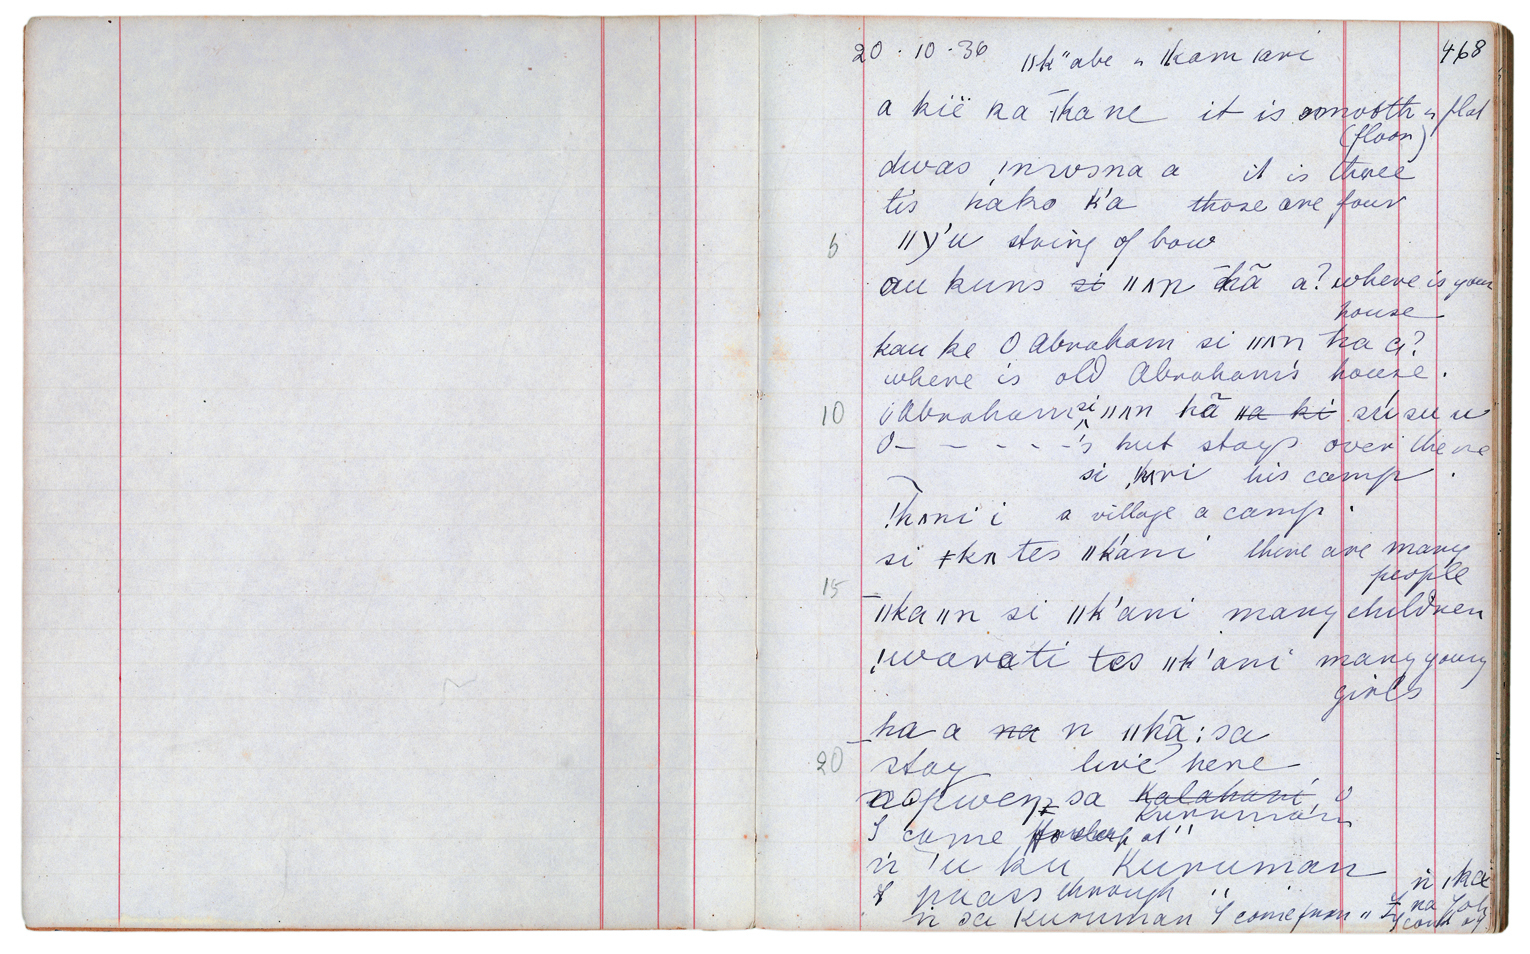 20 · 10 · 36 ǁk"abe " ǁkam ǀari 468
a kïë ka ǂkane it is smooth " flat
(floor)
dwas !nwsna a it is three
tis hako k'a those are four
5 ǁɣ'u string of bow
au kuns si ǁʌn kã a? where is your
house
kau ke O Abraham si ǁʌn ka a?
where is old Abraham's house.
10 Abraham si ǁʌn kã ǁa ki su su u
O – – – – – 's hut stays over there
si his camp.
!hʌni i a village a camp.
si ǂkʌ tes ǁk'ani there are many
people
15 ǁkaǁn si ǁk'ani many children
!warati tes ǁk'ani many young
girls
ha a na n ǁkã: sa
20 stay live here
sa Kalahari
Kuruman
I come at "
n 'u ku Kuruman
I pass through "
n sa Kuruman I come from "